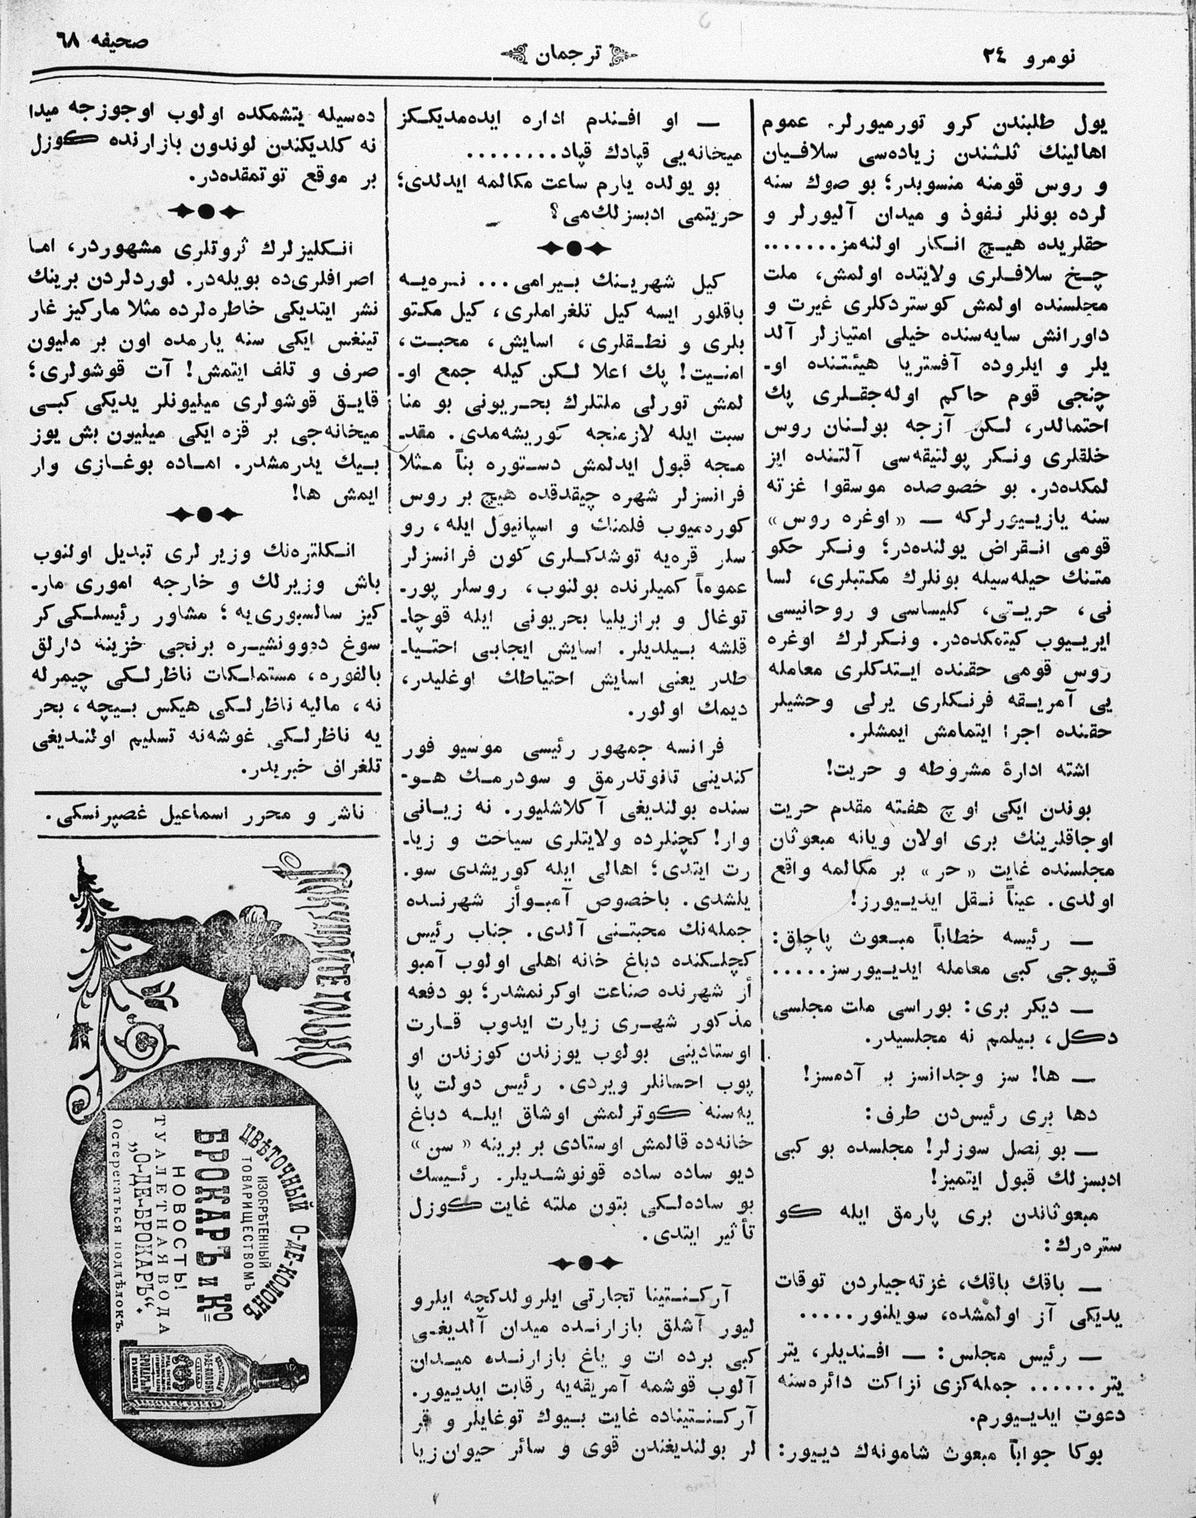 نومرو ٢٤
ترجمان
صحيفه ٦٨
يول طلبندن كرو تورميورلر. عموم
اهالينك ثلثندن زياده‌سى سلافيان
و روس قومنه منسوبدر؛ بو صوك سنه
لرده بونلر نفوذ و ميدان آليورلر و
حقلريده هيچ انكار اولنه‌مز.......
چخ سلافلرى ولايتده اولمش، ملت
مجلسنده اولمش كوستردكلرى غيرت و
داورانش سايه‌سنده خيلى امتيازلر آلد
يلر و ايلروده آفستريا هيئتنده او-
چنجى قوم حاكم اوله‌جقلرى پك
احتمالدر، لكن آزجه بولنان روس
خلقلرى ونكر پولتيقه‌سى آلتنده ايز
لمكده‌در. بو خصوصده موسقوا غزته
سنه يازييورلركه — «اوغره روس»
قومى انقراض يولنده‌در؛ ونكر حكو
متنك حيله‌سيله بونلرك مكتبلرى، لسا
نى، حريتى، كليساسى و روحانيسى
ايرييوب كيتمكده‌در. ونكرلرك اوغره
روس قومى حقنده ايتدكلرى معامله
يى آمريقه فرنكلرى يرلى وحشيلر
حقنده اجرا ايتمامش ايمشلر.
اشته ادارۀ مشروطه و حريت!
بوندن ايكى اوچ هفته مقدم حريت
اوجاقلرينك برى اولان ويانه مبعوثان
مجلسنده غايت «حر» بر مكالمه واقع
اولدى. عيناً نقل ايدييورز!
— رئيسه خطاباً مبعوث پاچلق:
قپوجى كبى معامله ايدييورسز.....
— ديكر برى: بوراسى ملت مجلسى
دكل، بيلمم نه مجلسيدر.
— ها! سز وجدانسز بر آدمسز!
دها برى رئيس‌دن طرف:
— بو نصل سوزلر! مجلسده بو كبى
ادبسزلك قبول ايتميز!
مبعوثاندن برى پارمق ايله كو
ستره‌رك:
— باقك باقك، غزته‌جيلردن توقات
يديكى آز اولمشده، سويلنور.....
— رئيس مجلس: — افنديلر، يتر
يتر...... جمله‌كزى نزاكت دائره‌سنه
دعوت ايدييورم.
بوكا جواباً مبعوث شامونه‌ك دييور:
— او افندم اداره ايده‌مديككز
ميخانه‌يى قپادك قپاد........
بو يولده يارم ساعت مكالمه ايدلدى؛
حريتمى ادبسزلك‌مى؟
كيل شهرينك بيرامى... نره‌يه
باقلور ايسه كيل تلغراملرى، كيل مكتو
بلرى و نطقلرى، اسايش، محبت،
امنيت! پك اعلا لكن كيله جمع او-
لمش تورلى ملتلرك بحريونى بو منا
سبت ايله لازمنجه كوريشه‌مدى. مقد-
مجه قبول ايدلمش دستوره بناً مثلا
فرانسزلر شهره چيقدقده هيچ بر روس
كورمميوب فلمنك و اسپانيول ايله، رو
سلر قره‌يه توشدكلرى كون فرانسزلر
عموماً كميلرنده بولنوب، روسلر پور-
توغال و برازيليا بحريونى ايله قوچا-
قلشه بيلديلر. اسايش ايجابى احتيا-
طدر يعنى اسايش احتياطك اوغليدر،
ديمك اولور.
فرانسه جمهور رئيسى موسيو فور
كندينى تانوتدرمق و سودرمك هو-
سنده بولنديغى آكلاشليور. نه زيانى
وار! كچنلرده ولايتلرى سياحت و زيا-
رت ايتدى؛ اهالى ايله كوريشدى سو.
يلشدى. باخصوص آمبوأز شهرنده
جمله‌نك محبتنى آلدى. جناب رئيس
كچلكنده دباغ خانه اهلى اولوب آمبو
أز شهرنده صناعت اوكرنمشدر؛ بو دفعه
مذكور شهرى زيارت ايدوب قارت
اوستادينى بولوب يوزندن كوزندن او
پوب احسانلر ويردى. رئيس دولت پا
يه‌سنه كوترلمش اوشاق ايله دباغ
خانه‌ده قالمش اوستادى بر برينه «سن»
ديو ساده ساده قونوشديلر. رئيسك
بو ساده‌لكى بتون ملته غايت كوزل
تأثير ايتدى.
آركنتينا تجارتى ايلرولدكچه ايلرو
ليور آشلق بازارنده ميدان آلديغى
كبى برده ات و ياغ بازارنده ميدان
آلوب قوشمه آمريقه‌يه رقابت ايدييور.
آركنتيناده غايت بيوك توغايلر و قر
لر بولنديغندن قوى و سائر حيوان زيا
ده‌سيله يتشمكده اولوب اوجوزجه ميدا
نه كلديكندن لوندون بازارنده كوزل
بر موقع توتمقده‌در.
انكليزلرك ثروتلرى مشهوردر، اما
اصرافلرى‌ده بويله‌در. لوردلردن برينك
نشر ايتديكى خاطره‌لرده مثلا ماركيز غار
تينغس ايكى سنه يارمده اون بر مليون
صرف و تلف ايتمش! آت قوشولرى؛
قايق قوشولرى ميليونلر يديكى كبى
ميخانه‌جى بر قزه ايكى ميليون بش يوز
بيك يدرمشدر. اماده بوغازى وار
ايمش ها!
انكلتره‌نك وزير لرى تبديل اولنوب
باش وزيرلك و خارجه امورى مار-
كيز سالسبورى‌يه؛ مشاور رئيسلكى كر
سوغ دموونشيره برنجى خزينه دارلق
بالفوره، مستملكات ناظرلكى چيمرله
نه، ماليه ناظرلكى هيكس بيچه، بحر
يه ناظرلكى غوشه‌نه تسليم اولنديغى
تلغراف خبريدر.
ناشر و محرر اسماعيل غصپرنسكى.
ТОЛЬКО
ЦВѢТОЧНЫЙ О-ДЕ-КОЛОНЪ
ИЗОБРѢТЕННЫЙ
ТОВАРИЩЕСТВОМЪ
БРОКАРЪ и К°
НОВОСТЬ!
ТУАЛЕТНАЯ ВОДА
„О-ДЕ-БРОКАРЪ“.
Остерегаться поддѣлокъ.